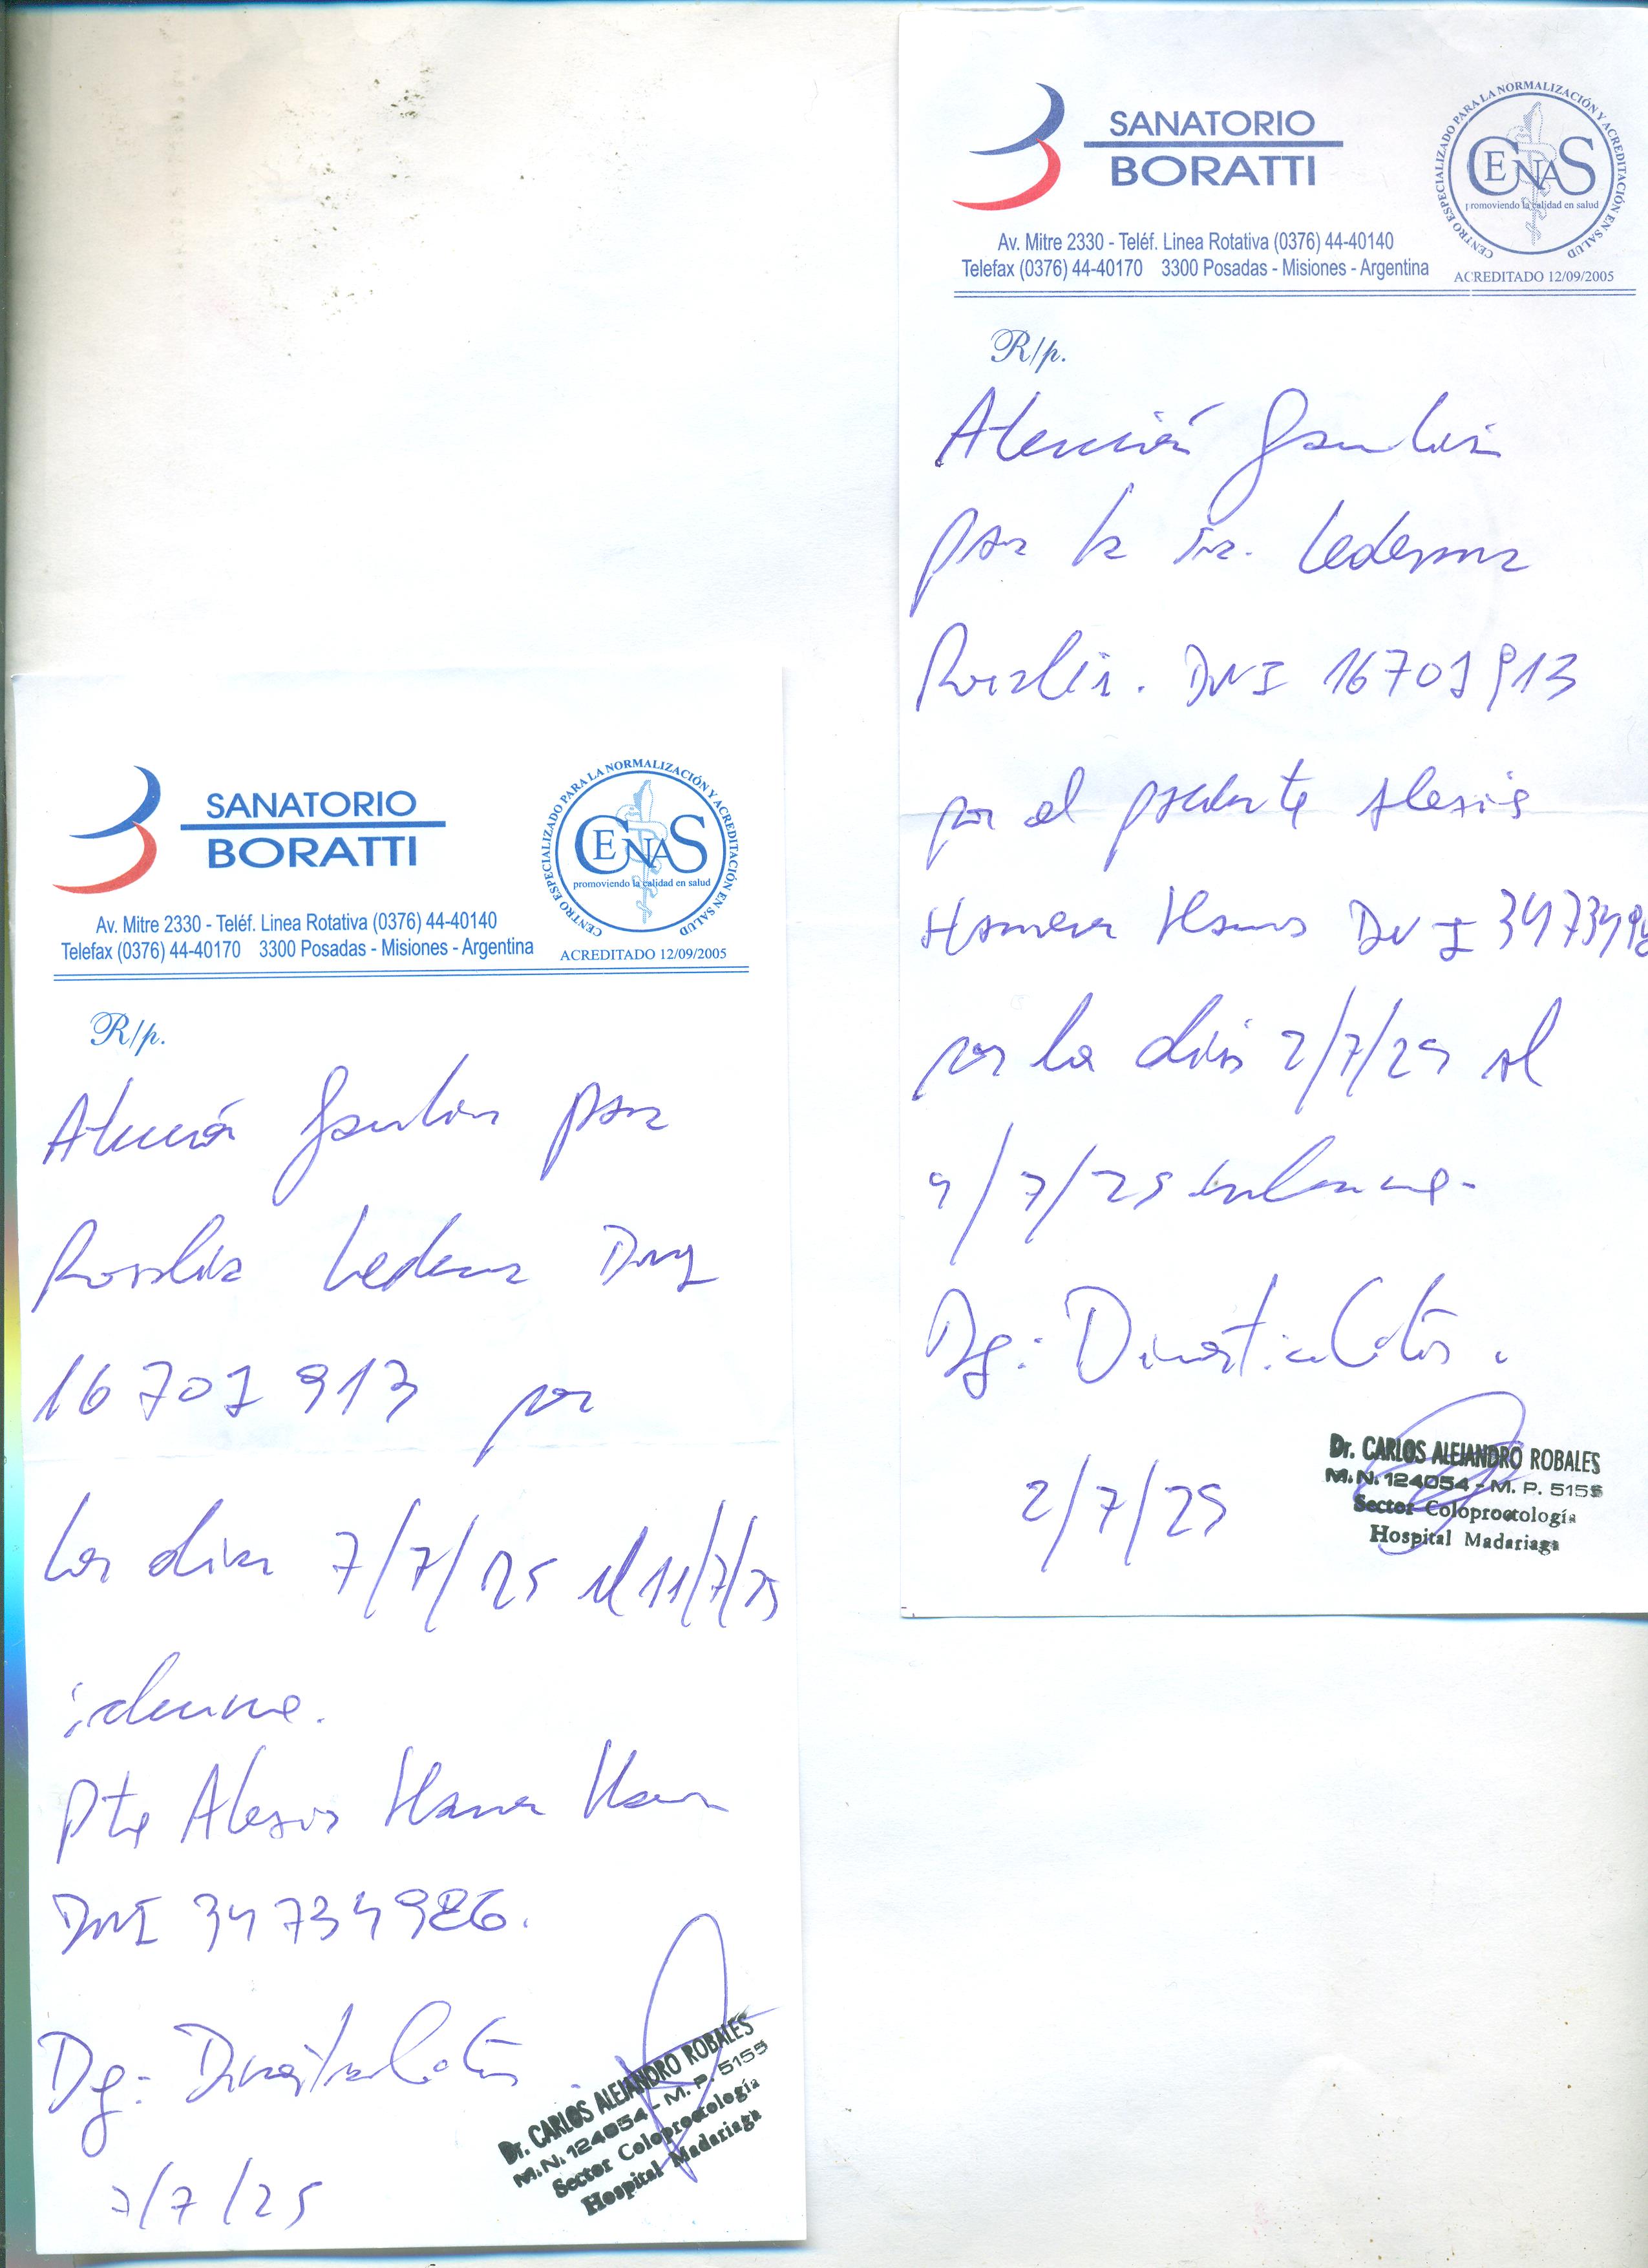 SANATORIO
BORATTI
CENTRO ESPECIALIZADO PARA LA NORMALIZACIÓN Y ACREDITACIÓN EN SALUD
CENAS
promoviendo la calidad en salud
Av. Mitre 2330 - Teléf. Linea Rotativa (0376) 44-40140
Telefax (0376) 44-40170 3300 Posadas - Misiones - Argentina
ACREDITADO 12/09/2005
R/p.
Atención familiar para
Rosalia Ledesma DNI
16 701 913 por
los dias 7/7/25 al 11/7/25
inclusive.
Pte Alexis
DNI 34734986.
Dg: Diverticulitis.
7/7/25
Dr. CARLOS ALEJANDRO ROBALES
M.N. 124054 - M. P. 5155
Sector Coloproctología
Hospital Madariaga
SANATORIO
BORATTI
CENTRO ESPECIALIZADO PARA LA NORMALIZACIÓN Y ACREDITACIÓN EN SALUD
CENAS
promoviendo la calidad en salud
Av. Mitre 2330 - Teléf. Linea Rotativa (0376) 44-40140
Telefax (0376) 44-40170 3300 Posadas - Misiones - Argentina
ACREDITADO 12/09/2005
R/p.
Atención familiar
para la Sra. Ledesma
Rosalia. DNI 16701913
por el paciente Alexis
DNI 3473498
por los dias 2/7/25 al
4/7/25 inclusive.
Dg: Diverticulitis.
2/7/25
Dr. CARLOS ALEJANDRO ROBALES
M.N. 124054 - M. P. 5155
Sector Coloproctología
Hospital Madariaga